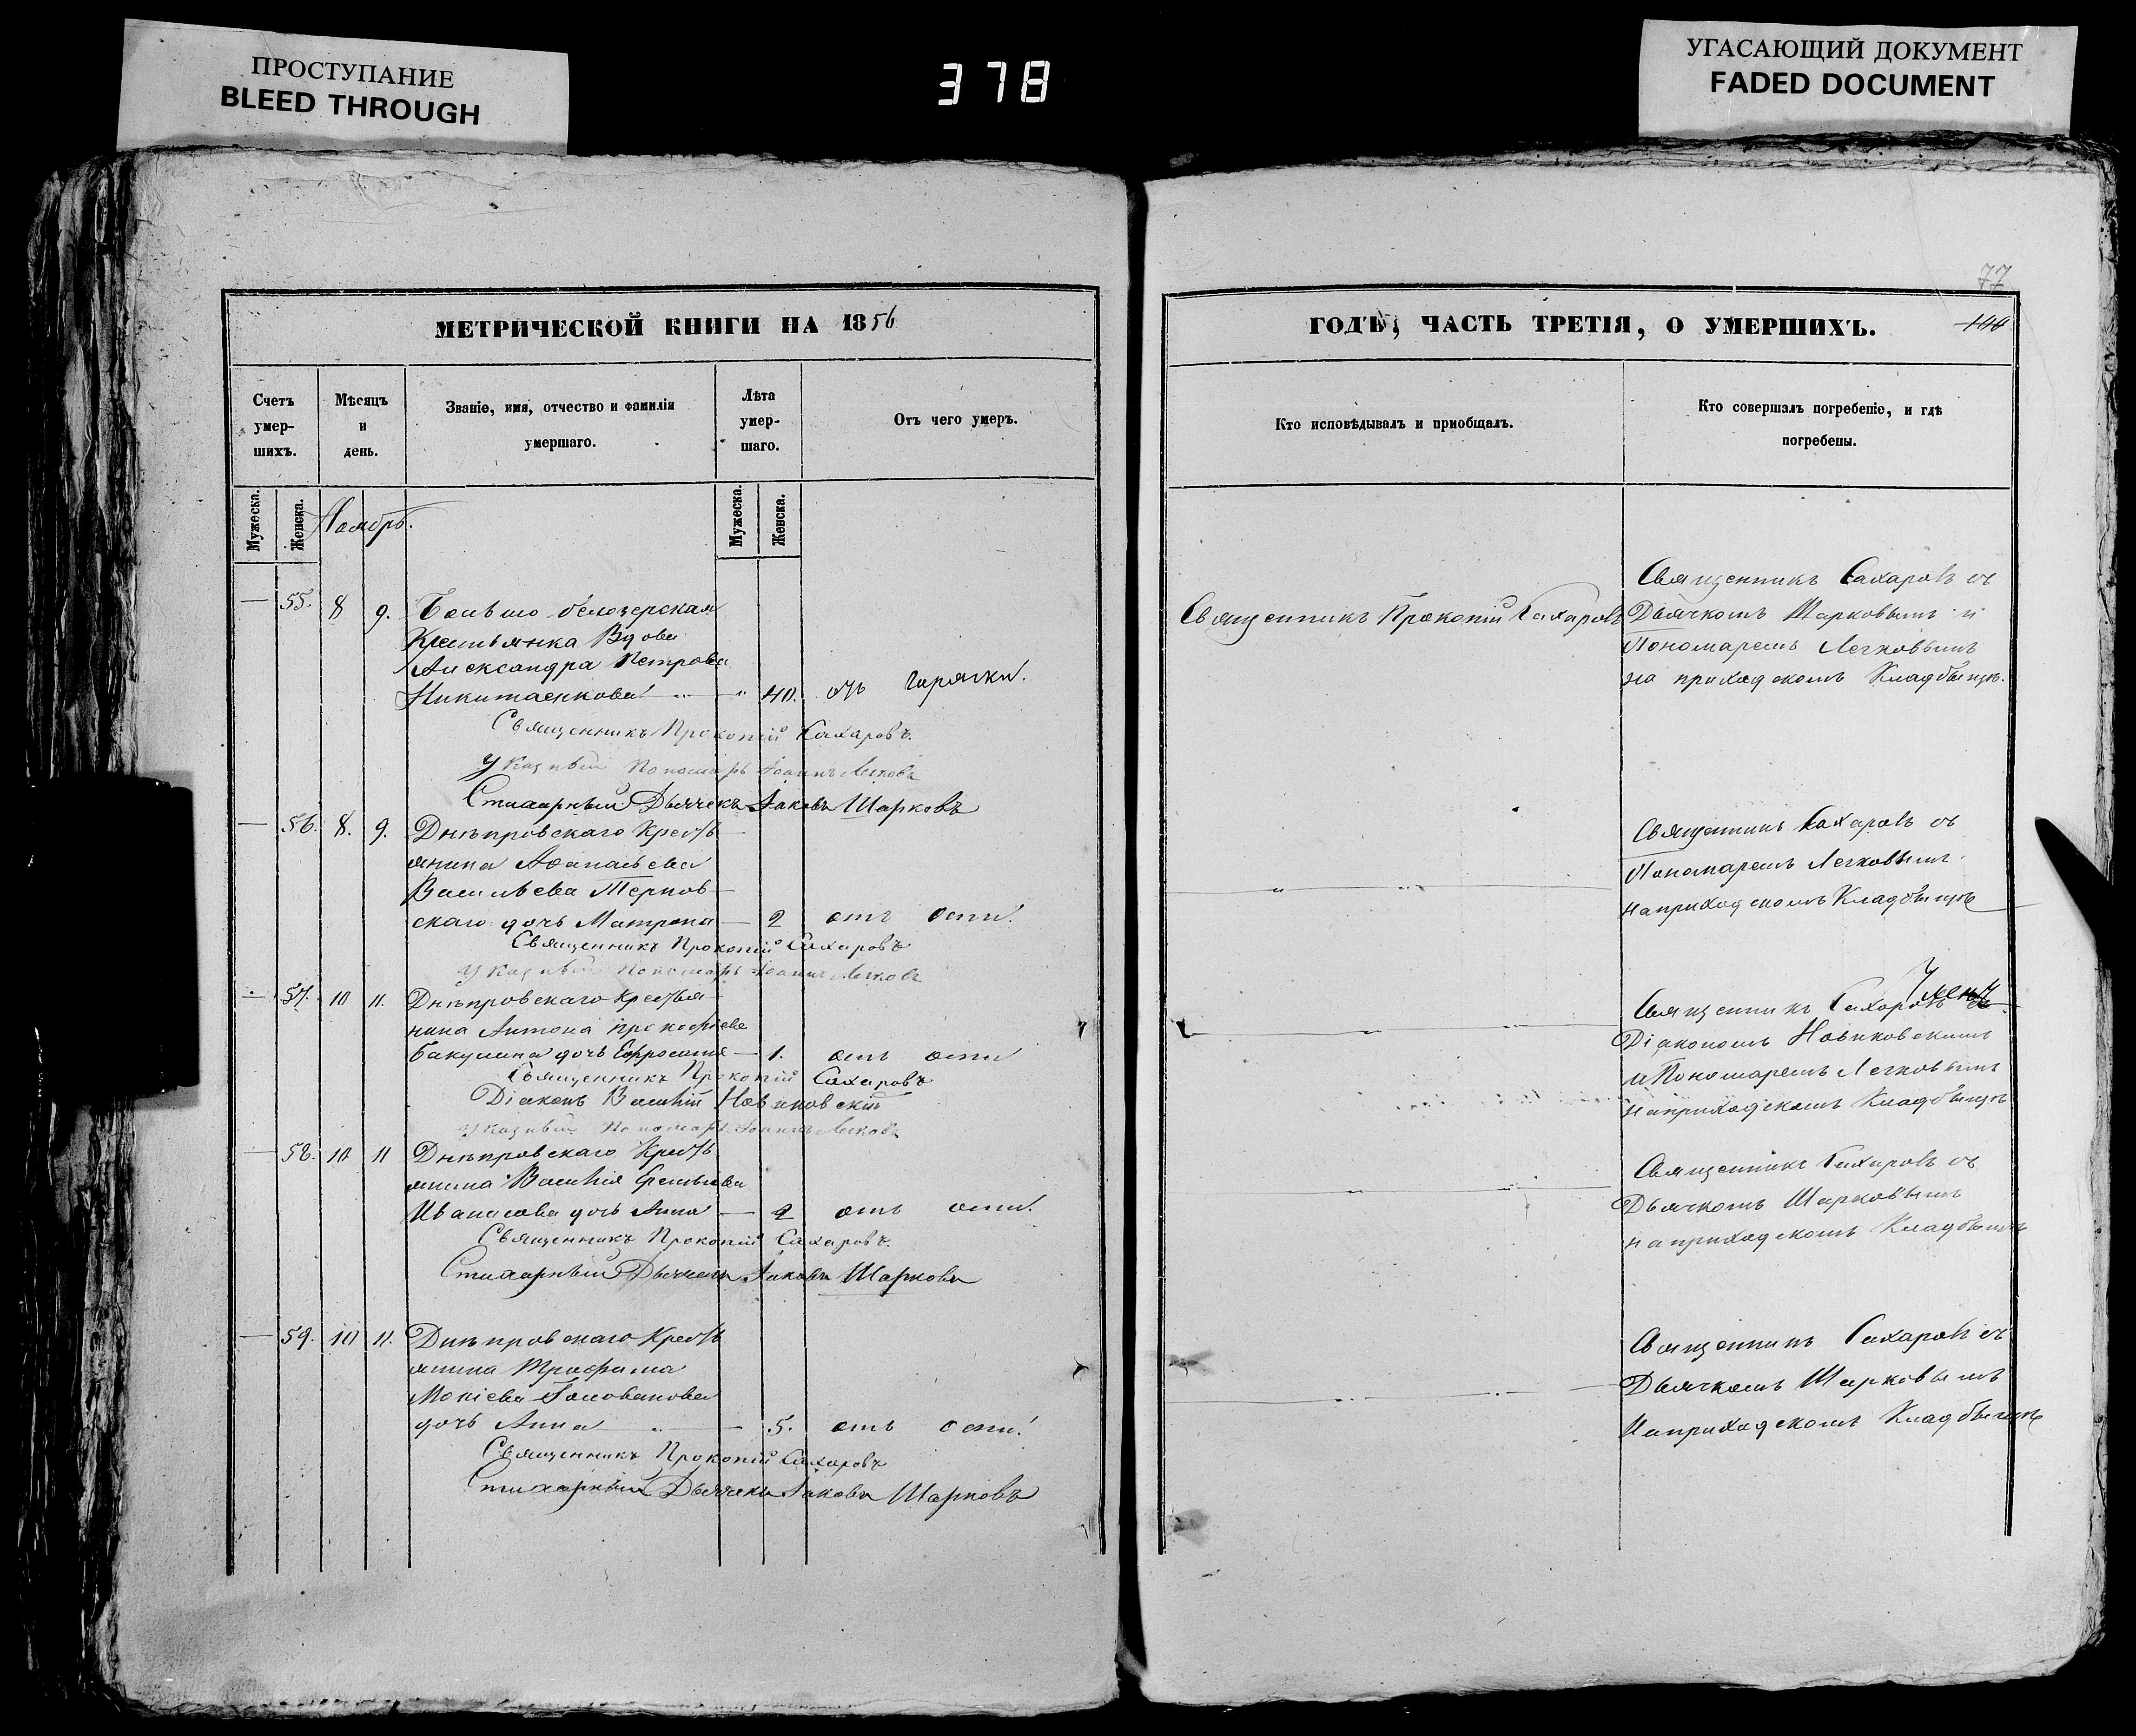 ПРОСТУПАНИЕ
BLEED THROUGH
378
УГАСАЮЩИЙ ДОКУМЕНТ
FADED DOCUMENT
МЕТРИЧЕСКОЙ КНИГИ НА 1856
Счетъ умер-шихъ.
Мѣсяцъ и день.
Званіе, имя, отчество и фамилія умершаго.
Лѣта умер-шаго.
Отъ чего умеръ.
Мужеска.
Женска.
Ноябрь.
Мужеска.
Женска.
— 55. 8 9. Больше белозерская
Крестьянка Вдова
Александра Петрова
Никитаенкова 40. отъ горячки.
Священникъ Прокопій Сахаровъ.
Указный Пономарь Іоаннъ Легковъ
Стихарный Дьячекъ Іаковъ Шарковъ
— 56. 8. 9. Днѣпровскаго Кресть
янина Афанасьева
Васильева Тернов
скаго дочь Матрона — 2 отъ оспи.
Священникъ Прокопій Сахаровъ
Указный Пономарь Іоаннъ Легковъ
— 57. 10 11. Днѣпровскаго крестья
нина Антона прокофіева
Бакулина дочь Ефросинія — 1. отъ оспи
Священникъ Прокопій Сахаровъ
Діаконъ Василій Новиковскій
Указный Пономарь Іоаннъ Легковъ
— 58. 10 11 Днѣпровскаго Кресть
янина Василія Еремѣева
дочь Анна — 2 отъ оспи.
Священникъ Прокопій Сахаровъ.
Стихарный Дьячекъ Іаковъ Шарковъ
— 59. 10 11. Днѣпровскаго Кресть
янина Трофима
Мокіева Голованова
дочь Анна — 5. отъ оспи.
Священникъ Прокопій Сахаровъ
Стихарный Дьячекъ Іаковъ Шарковъ
77
ГОДЪ, ЧАСТЬ ТРЕТІЯ, О УМЕРШИХЪ.
Кто исповѣдывалъ и приобщалъ.
Кто совершалъ погребеніе, и гдѣ погребены.
Священникъ Прокопій Сахаровъ
Священникъ Сахаровъ съ
Дьячкомъ Шарковымъ и
Пономаремъ Легковымъ
на приходскомъ Кладбищѣ.
Священникъ Сахаровъ съ
Пономаремъ Легковымъ
на приходскомъ Кладбищѣ
Священникъ Сахаровъ съ
Діакономъ Новиковскимъ
и Пономаремъ Легковымъ
на приходскомъ Кладбищѣ
Священникъ Сахаровъ съ
Дьячкомъ Шарковымъ
на приходскомъ Кладбищѣ
Священникъ Сахаровъ съ
Дьячкомъ Шарковымъ
На приходскомъ Кладбищѣ